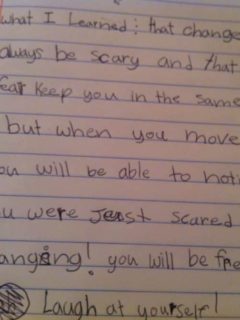 what I Learned: that change
always be scary and that
fear keep you in the same
but when you move
you will be able to noti
u were Jeast scared
anging! you will be free
Laugh at yourself!